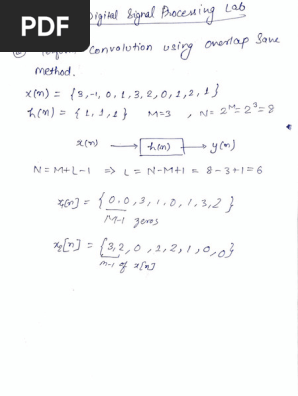 PDF
Digital Signal Processing Lab
Convolution using overlap Save
method.
x(n) = {3,-1, 0, 1, 3, 2, 0, 1, 2, 1}
h(n) = {1, 1, 1} M=3 , N= 2^M = 2^3 = 8
x(n) → h(n) → y(n)
N = M+L-1 ⇒ L = N-M+1 = 8-3+1 = 6
x₁[n] = {0.0, 3, 1, 0, 1, 3, 2}
M-1 zeros
x₂[n] = {3, 2, 0, 1, 2, 1, 0, 0}
m-1 of x[n]